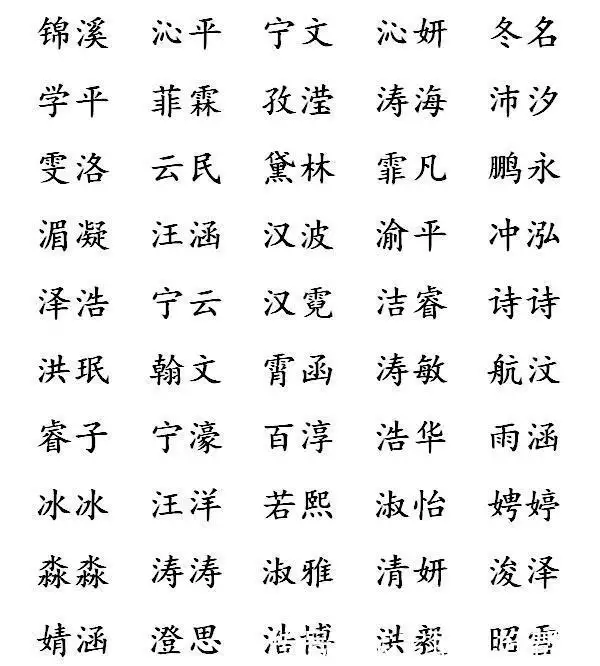 锦溪 沁平 宁文 沁妍 冬名
学平 菲霖 孜滢 涛海 沛汐
雯洛 云民 黛林 霏凡 鹏永
湄凝 汪涵 汉波 渝平 冲泓
泽浩 宁云 汉霓 洁睿 诗诗
洪珉 翰文 霄函 涛敏 航汶
睿子 宁濠 百淳 浩华 雨涵
冰冰 汪洋 若熙 淑怡 娉婷
淼淼 涛涛 淑雅 清妍 浚泽
婧涵 澄思 浩博 洪毅